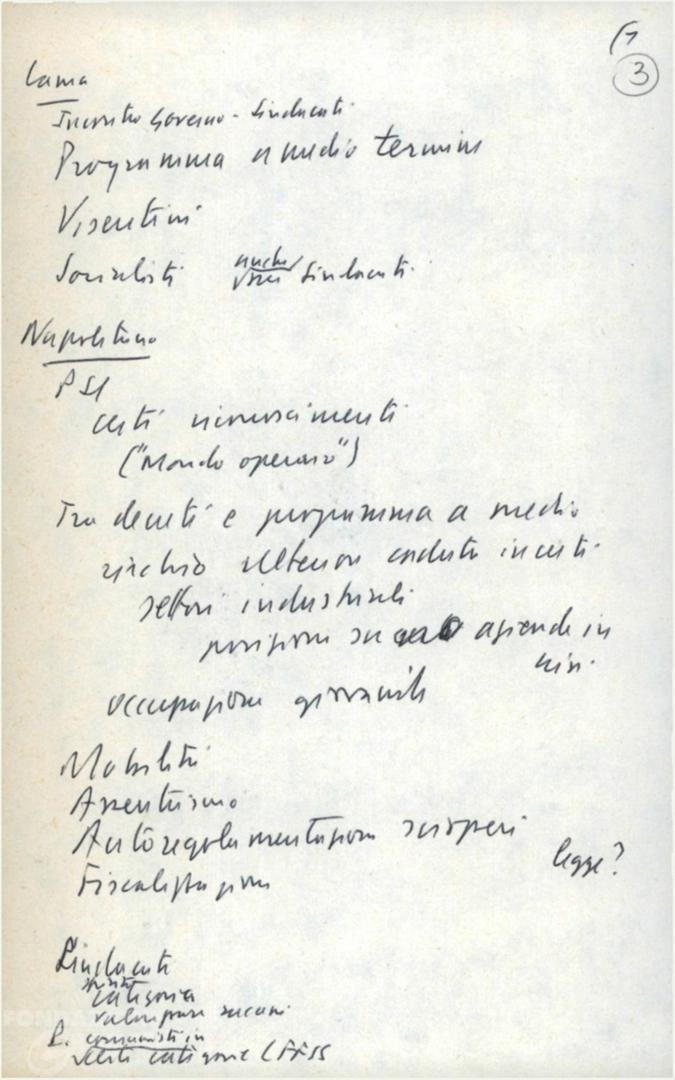 3
Lama
Incontro Governo - Sindacati
Programma a medio termine
Visentini
Socialisti anche verso Sindacati
Napolitano
PSI
certi riconoscimenti
("Mondo operaio")
Tra decreti e programma a medio
rischio ulteriore caduta in certi
settori industriali
posizione su aziende in
crisi
occupazione giovanile
Mobilità
Assenteismo
Autoregolamentazione scioperi
legge?
Fiscalizzazione
Sindacati
spinte
categoria
comunisti in
certe categorie (FFSS